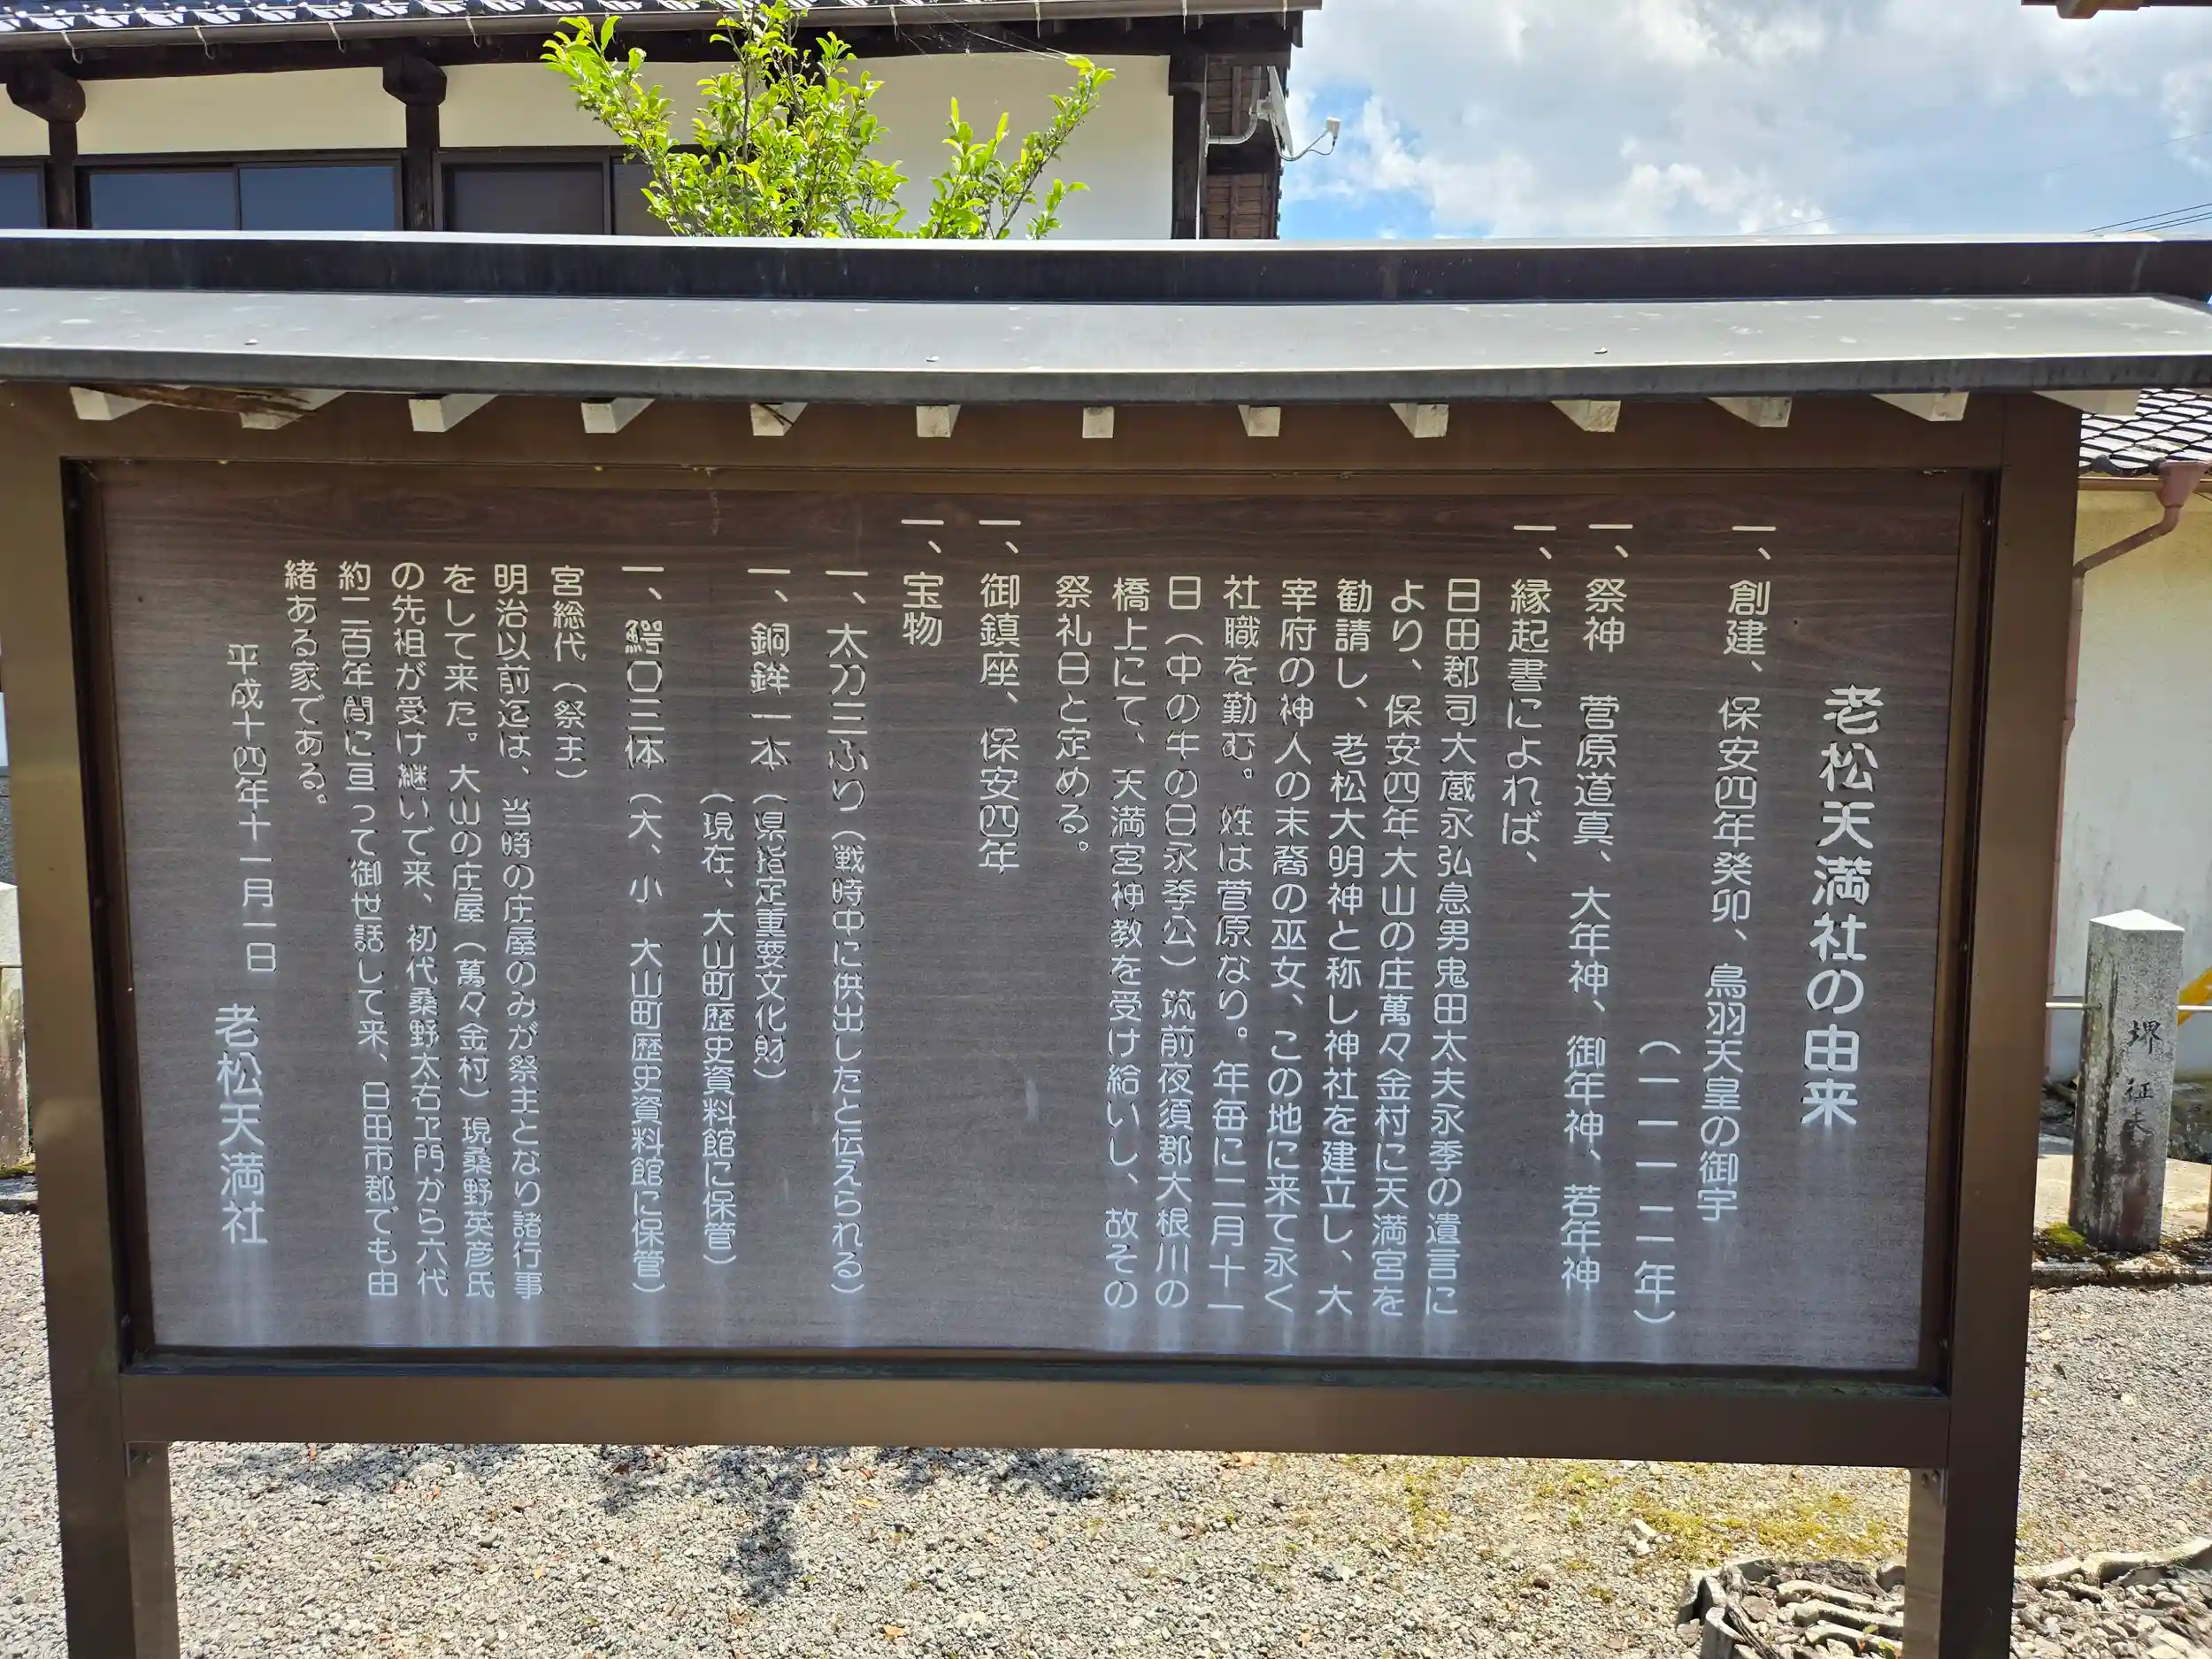 老松天満社の由来
一、創建、保安四年癸卯、鳥羽天皇の御宇
（一一一二年）
一、祭神　菅原道真、大年神、御年神、若年神
一、縁起書によれば、
日田郡司大蔵永弘息男鬼田太夫永季の遺言に
より、保安四年大山の庄萬々金村に天満宮を
勧請し、老松大明神と称し神社を建立し、大
宰府の神人の末裔の巫女、この地に来て永く
社職を勤む。姓は菅原なり。年毎に二月十一
日（中の牛の日永季公）筑前夜須郡大根川の
橋上にて、天満宮神教を受け給いし、故その
祭礼日と定める。
一、御鎮座、保安四年
一、宝物
一、太刀三ふり（戦時中に供出したと伝えられる）
一、銅鉾一本（県指定重要文化財）
（現在、大山町歴史資料館に保管）
一、鰐口三体（大、小　大山町歴史資料館に保管）
宮総代（祭主）
明治以前迄は、当時の庄屋のみが祭主となり諸行事
をして来た。大山の庄屋（萬々金村）現桑野英彦氏
の先祖が受け継いで来、初代桑野太右ヱ門から六代
約二百年間に亘って御世話して来、日田市郡でも由
緒ある家である。
平成十四年十一月一日　老松天満社
堺　征夫